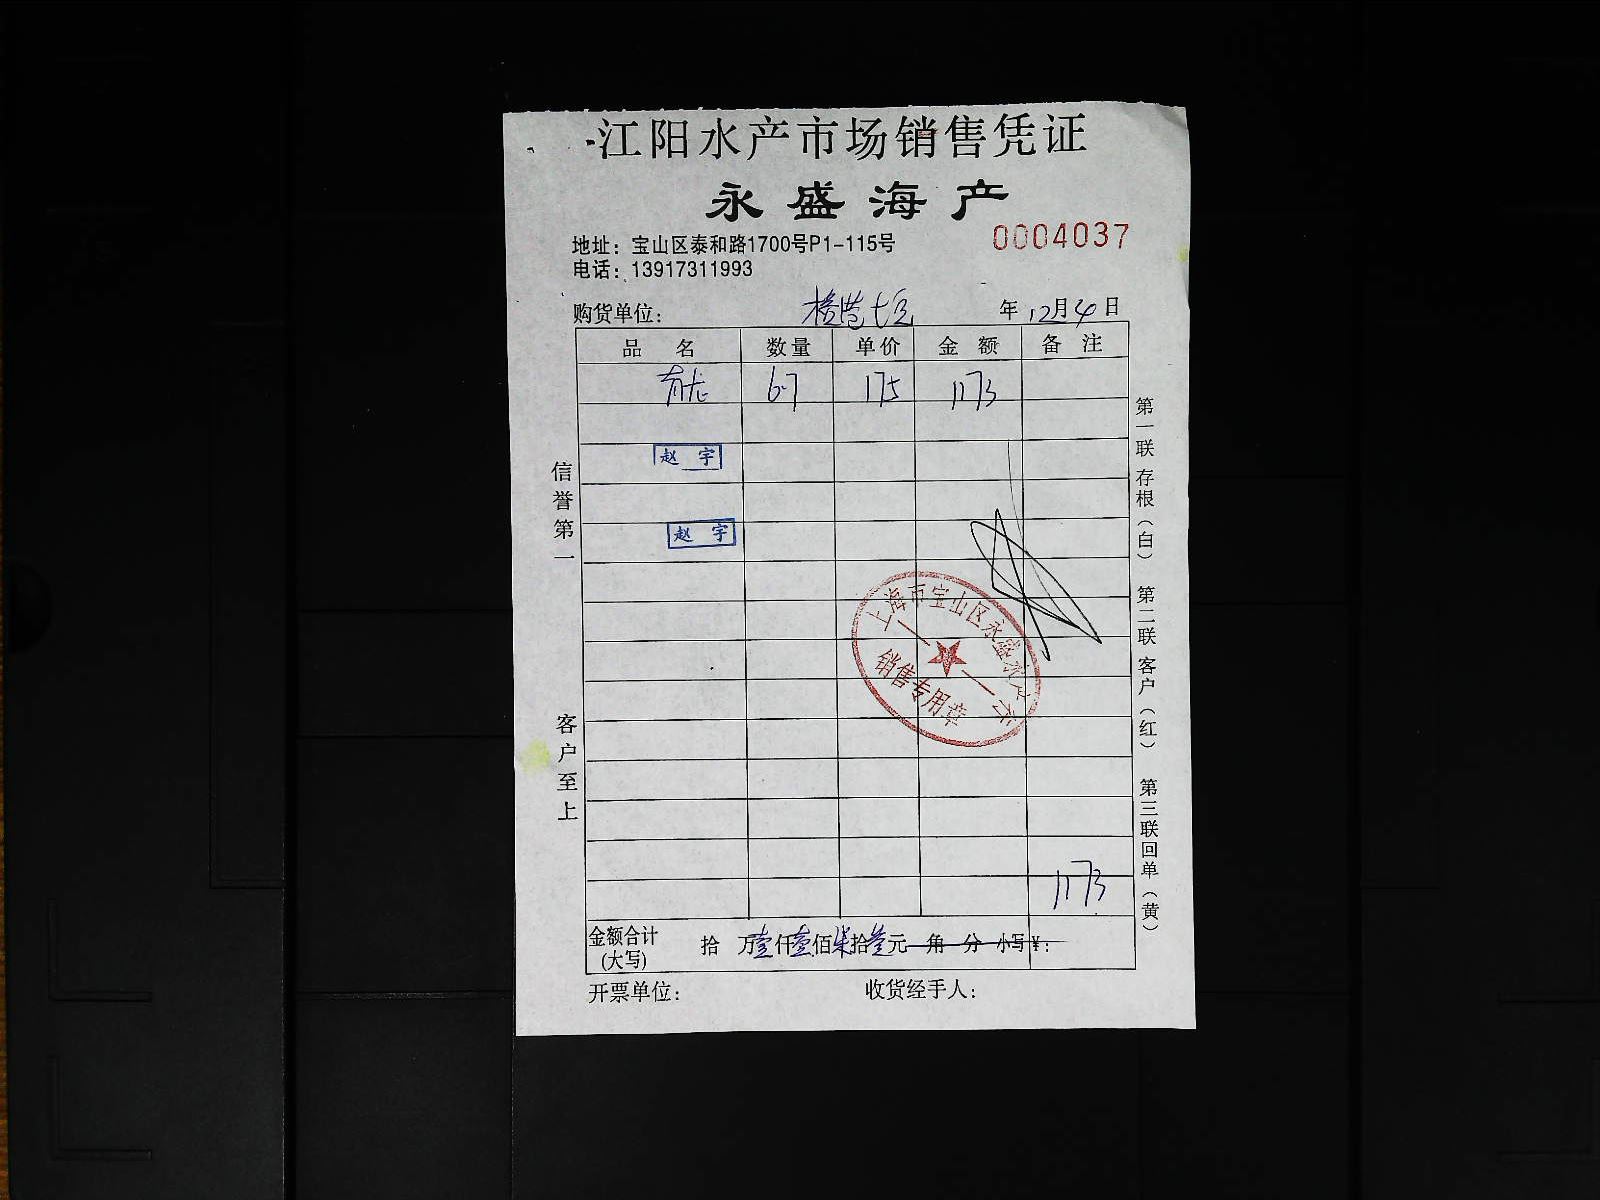 江阳水产市场销售凭证
永盛海产
0004037
地址：宝山区泰和路1700号P1-115号
电话：13917311993
购货单位： 年12月4日
品名 数量 单价 金额 备注
6.7 175 1173
赵宇
赵宇
信誉第一
客户至上
上海市宝山区永盛水产
销售专用章
第一联存根（白） 第二联客户（红） 第三联回单（黄）
1173
金额合计 拾 万壹仟壹佰柒拾叁元 角 分 小写¥：
(大写)
开票单位： 收货经手人：